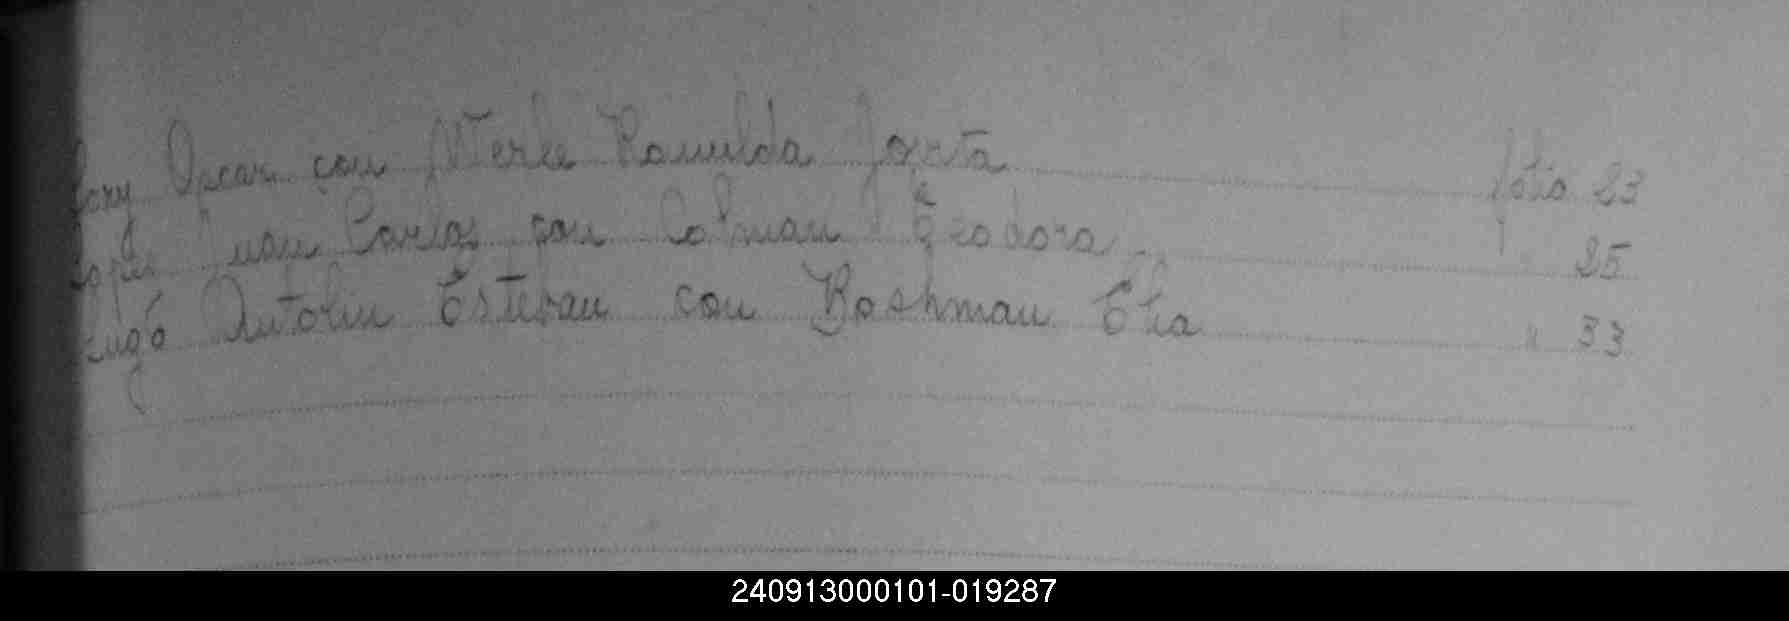 Oscar con Merke Romilda Jovita folio 23
Lopez Juan Carlos con Colman Teodora " 25
Lugo Antolin Esteban con Boshman Elia " 33
240913000101-019287